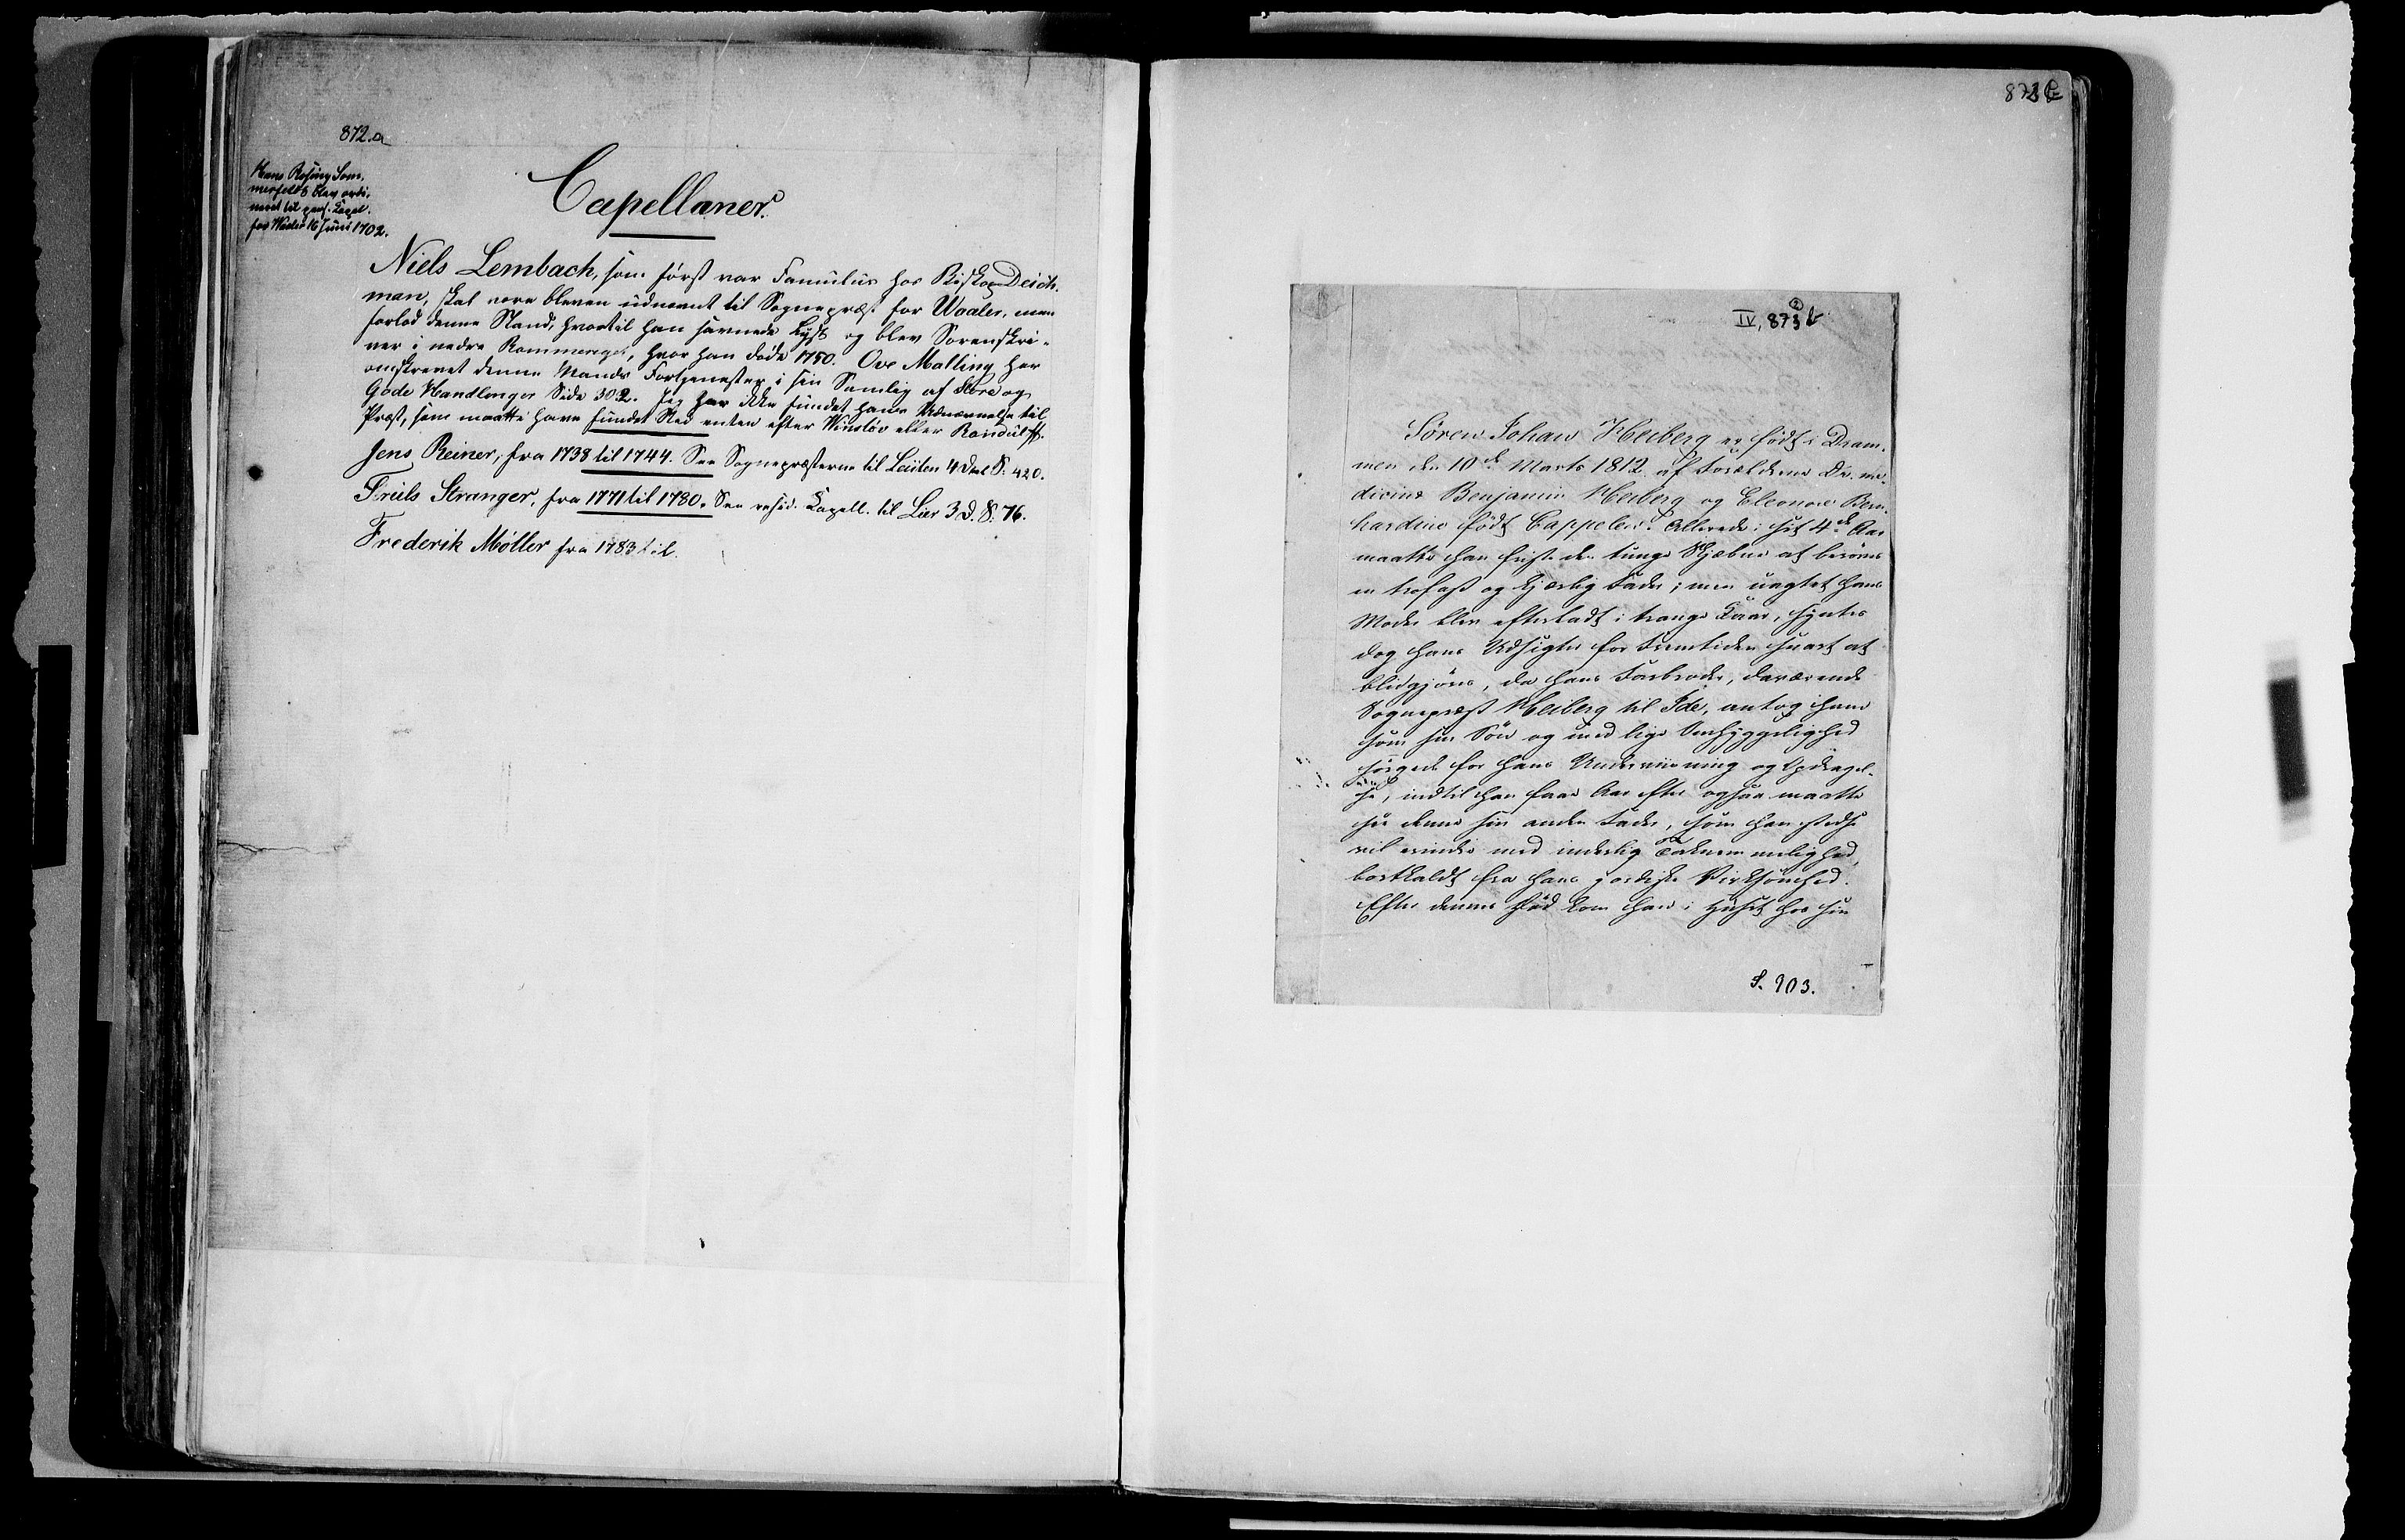 872.a
Hans Rosing Som-
merfeldt blev ordi-
neret til pers. Capel.
for Waaler 16 Juni 1702.
Capellaner.
Niels Lembach, som først var Famulus hos Biskop Deich-
man, skal være bleven udnævnt til Sognepræst for Waaler, men
forlod denne Stand, hvortil han savnede Lyst og blev Sorenskri-
ver i nedre Rommerige, hvor han døde 1750. Ove Malling har
omskrevet denne Mands Fortjenester i sin Samlig af Store og
Gode Handlinger Side 302. Jeg har ikke fundet hans Udnævnelse til
Præst, som maatte have fundet Sted enten efter Winsløv eller Randulff.
Jens Reiner, fra 1738 til 1744. See Sognepræsterne til Leuten 4 Deel S. 420.
Friils Stranger, fra 1771 til 1780. See resid. Capell. til Lier 3 D. S. 76.
Frederik Møller fra 1783 til
IV, 873 b
Søren Johan Heiberg er født i Dram-
men den 10de Marts 1812 af Forældrene Dr. me-
dicinæ Benjamin Heiberg og Eleonore Bern-
hardine født Cappelen. Allerede i sit 4de Aar
maatte han friste den tunge Skjæbne at berøves
en trofast og kjærlig Fader; men uagtet hans
Moder blev efterladt i trange Kaar, syntes
dog hans Udsigter for Fremtiden snart at
blidgjøres, da hans Farbroder, daværende
Sognepræst Heiberg til Ide, antog ham
som sin Søn og med lige Omhyggelighed
sørgede for hans Underviisning og Opdragel-
se, indtil han faae Aar efter ogsaa maatte
see denne sin anden Fader, som han stedse
vil erindre med inderlig Taknemmelighed,
bortkaldt fra hans jordiske Virksomhed.
Efter dennes Død kom han i Huset hos sin
S. 903.